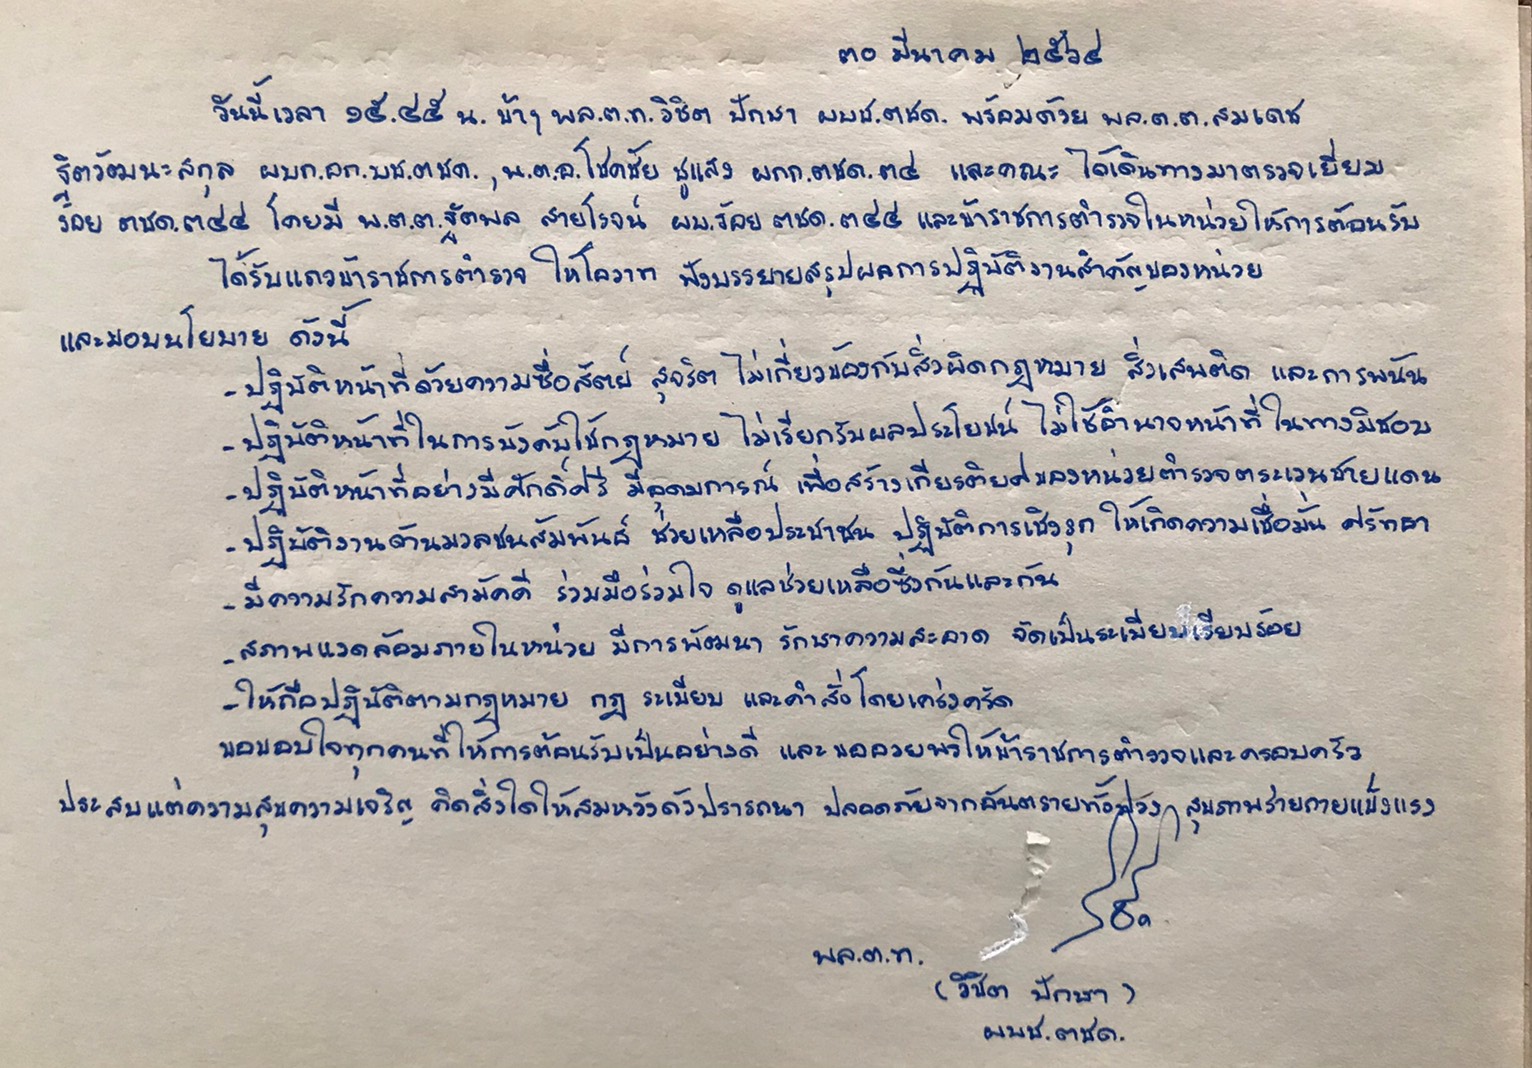 ๓๐ มีนาคม ๒๕๖๔
วันนี้เวลา ๑๕.๔๕ น. ข้าฯ พล.ต.ท.วิชิต ปักษา ผบช.ตชด. พร้อมด้วย พล.ต.ต.สมเดช
ฐิตวัฒนะสกุล ผบก.อก.บช.ตชด., พ.ต.อ.โชคชัย ชูแสง ผกก.ตชด.๓๔ และคณะ ได้เดินทางมาตรวจเยี่ยม
ร้อย ตชด.๓๔๔ โดยมี พ.ต.ต.ฐัตพล สายโรจน์ ผบ.ร้อย ตชด.๓๔๔ และข้าราชการตำรวจในหน่วยให้การต้อนรับ
ได้รับแถวข้าราชการตำรวจ ให้โอวาท ฟังบรรยายสรุปผลการปฏิบัติงานสำคัญของหน่วย
และมอบนโยบาย ดังนี้
- ปฏิบัติหน้าที่ด้วยความซื่อสัตย์ สุจริต ไม่เกี่ยวข้องกับสิ่งผิดกฎหมาย สิ่งเสพติด และการพนัน
- ปฏิบัติหน้าที่ในการบังคับใช้กฎหมาย ไม่เรียกรับผลประโยชน์ ไม่ใช้อำนาจหน้าที่ในทางมิชอบ
- ปฏิบัติหน้าที่อย่างมีศักดิ์ศรี มีอุดมการณ์ เพื่อสร้างเกียรติยศของหน่วยตำรวจตระเวนชายแดน
- ปฏิบัติงานด้านมวลชนสัมพันธ์ ช่วยเหลือประชาชน ปฏิบัติการเชิงรุก ให้เกิดความเชื่อมั่น ศรัทธา
- มีความรักความสามัคคี ร่วมมือร่วมใจ ดูแลช่วยเหลือซึ่งกันและกัน
- สภาพแวดล้อมภายในหน่วย มีการพัฒนา รักษาความสะอาด จัดเป็นระเบียบเรียบร้อย
- ให้ถือปฏิบัติตามกฎหมาย กฎ ระเบียบ และคำสั่งโดยเคร่งครัด
ขอขอบใจทุกคนที่ให้การต้อนรับเป็นอย่างดี และขออวยพรให้ข้าราชการตำรวจและครอบครัว
ประสบแต่ความสุขความเจริญ คิดสิ่งใดให้สมหวังดังปรารถนา ปลอดภัยจากอันตรายทั้งปวง สุขภาพร่างกายแข็งแรง
พล.ต.ท.
(วิชิต ปักษา)
ผบช.ตชด.